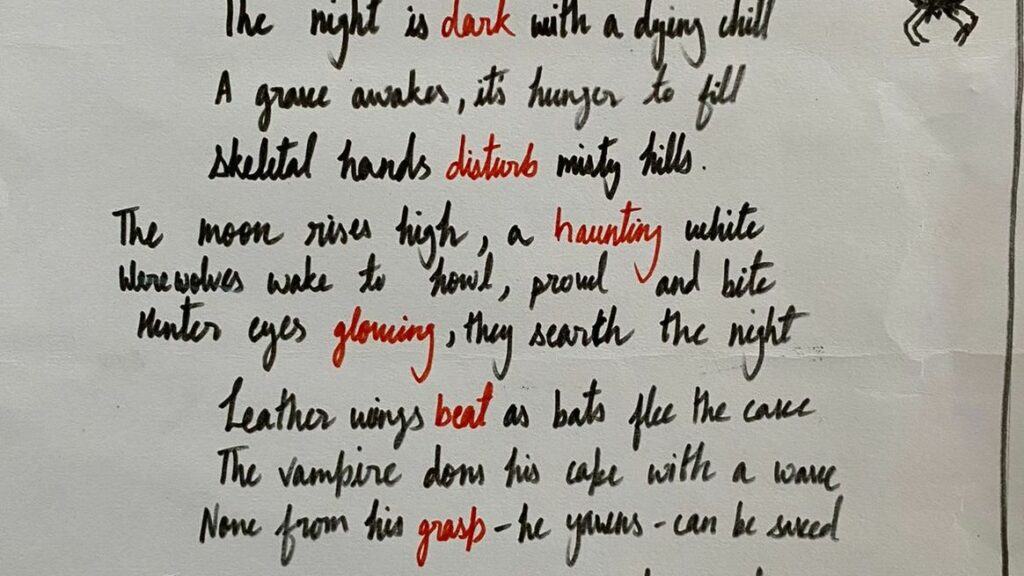 The night is dark with a dying chill
A grave awakes, it's hunger to fill
Skeletal hands disturb misty hills.
The moon rises high, a haunting white
Werewolves wake to howl, prowl and bite
Hunter eyes glowing, they search the night
Leather wings beat as bats flee the cave
The vampire dons his cape with a wave
None from his grasp - he yawns - can be saved